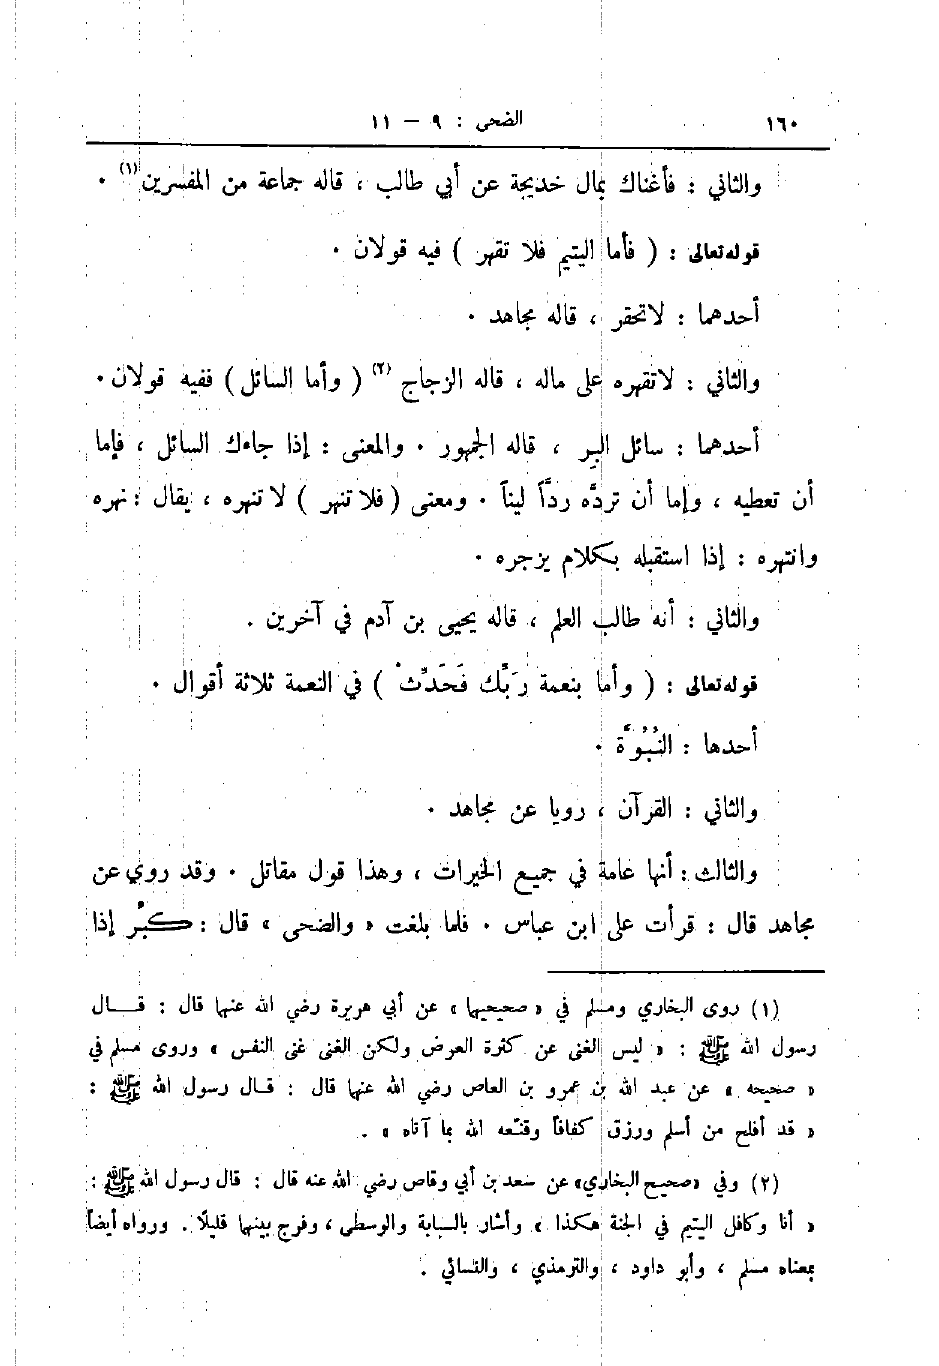 ١٦٠ الضحى : ٩ – ١١
والثاني : فأغناك بمال خديجة عن أبي طالب ، قاله جماعة من المفسرين (١) .
قوله تعالى : ( فأما اليتيم فلا تقهر ) فيه قولان .
أحدهما : لاتحقر ، قاله مجاهد .
والثاني : لاتقهره على ماله ، قاله الزجاج (٢) ( وأما السائل ) ففيه قولان .
أحدهما : سائل البر ، قاله الجمهور . والمعنى : إذا جاءك السائل ، فإما
أن تعطيه ، وإما أن تردَّه ردّاً ليناً . ومعنى ( فلا تنهر ) لا تنهره ، يقال : نهره
وانتهره : إذا استقبله بكلام يزجره .
والثاني : أنه طالب العلم ، قاله يحيى بن آدم في آخرين .
قوله تعالى : ( وأما بنعمة رَبِّك فَحَدِّثْ ) في النعمة ثلاثة أقوال .
أحدها : النُبُوَّة .
والثاني : القرآن ، رويا عن مجاهد .
والثالث : أنها عامة في جميع الخيرات ، وهذا قول مقاتل . وقد روي عن
مجاهد قال : قرأت على ابن عباس . فلما بلغت « والضحى » قال : كبِّر إذا
(١) روى البخاري ومسلم في « صحيحيها » عن أبي هريرة رضي الله عنها قال : قـــال
رسول الله ﷺ : « ليس الغنى عن كثرة العرض ولكن الغنى غنى النفس » وروى مسلم في
« صحيحه » عن عبد الله بن عمرو بن العاص رضي الله عنها قال : قـال رسول الله ﷺ :
« قد أفلح من أسلم ورزق كفافاً وقنّعه الله بما آتاه » .
(٢) وفي «صحيح البخاري» عن سعد بن أبي وقاص رضي الله عنه قال : قال رسول الله ﷺ :
« أنا وكافل اليتيم في الجنة هكذا » وأشار بالسبابة والوسطى ، وفرج بينها قليلًا . ورواه أيضاً
بمعناه مسلم ، وأبو داود ، والترمذي ، والنسائي .